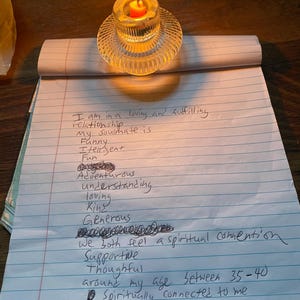 I am in a loving and fulfilling
relationship
my soulmate is
Funny
Intelegent
Fun
Adventurous
understanding
loving
Kind
Generous
We both feel a spiritual connention
Supportive
Thoughtful
around my age between 35-40
Spiritually connected to me